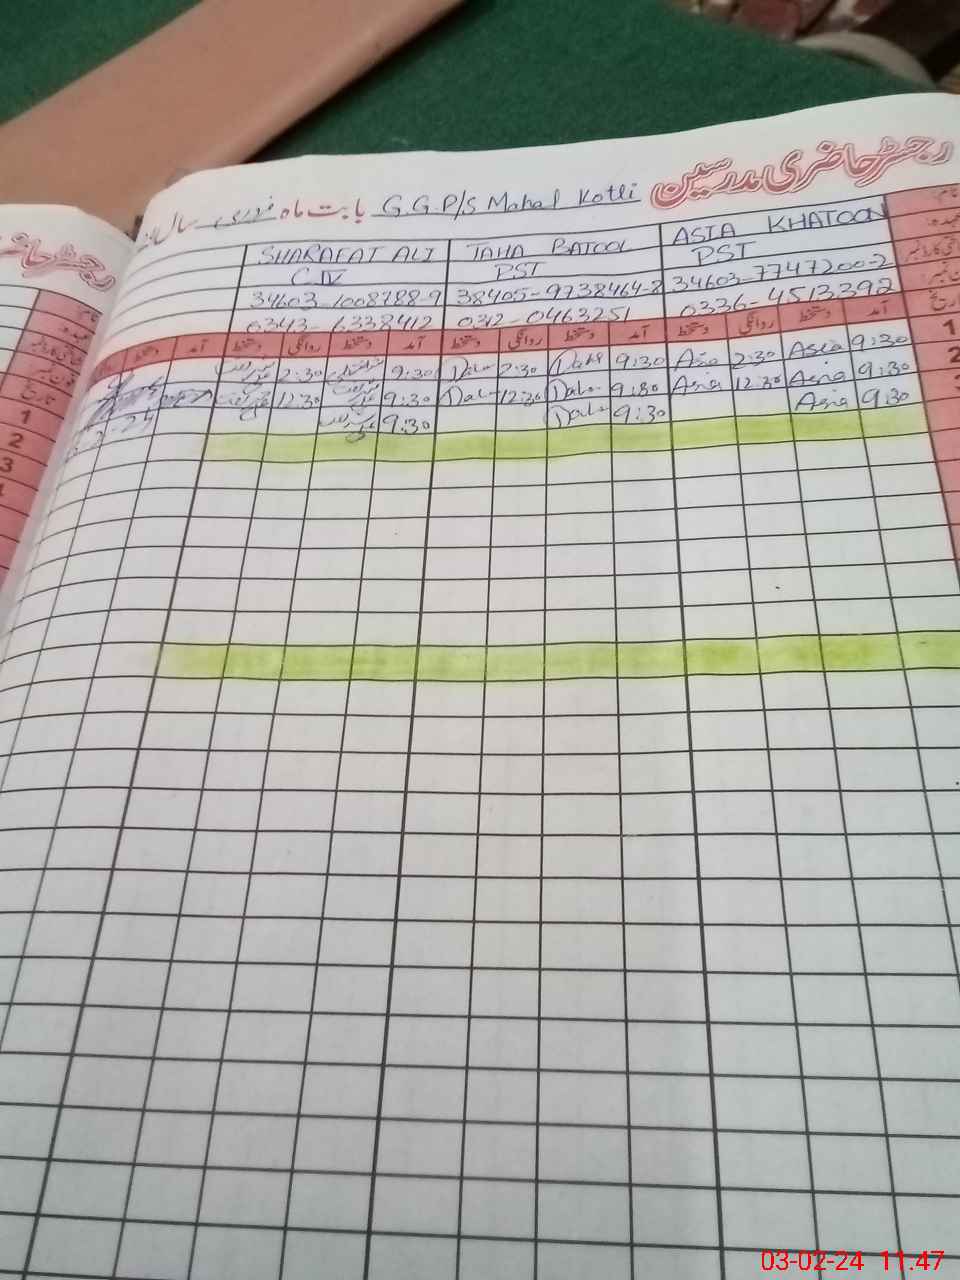 رجسٹر حاضری مدرسین G.G.P/S Mahal Kotli بابت ماہ فروری سال
ASIA KHATOON TAHA BATOOL SHARAFAT ALI
PST PST C.IV
34603-7747200-2 38405-9738464-8 34603-1008788-9
0336-4513392 0312-0463251 0343-6338412
آمد دستخط روانگی دستخط آمد دستخط روانگی دستخط آمد دستخط روانگی دستخط آمد دستخط
1 9:30 Asia 2:30 Asia 9:30 2:30 9:30 2:30
2 9:30 Asia 12:30 Asia 9:30 12:30 9:30 12:30
9:30 Asia 9:30 9:30
تاریخ
1
2
3
03-02-24 11.47